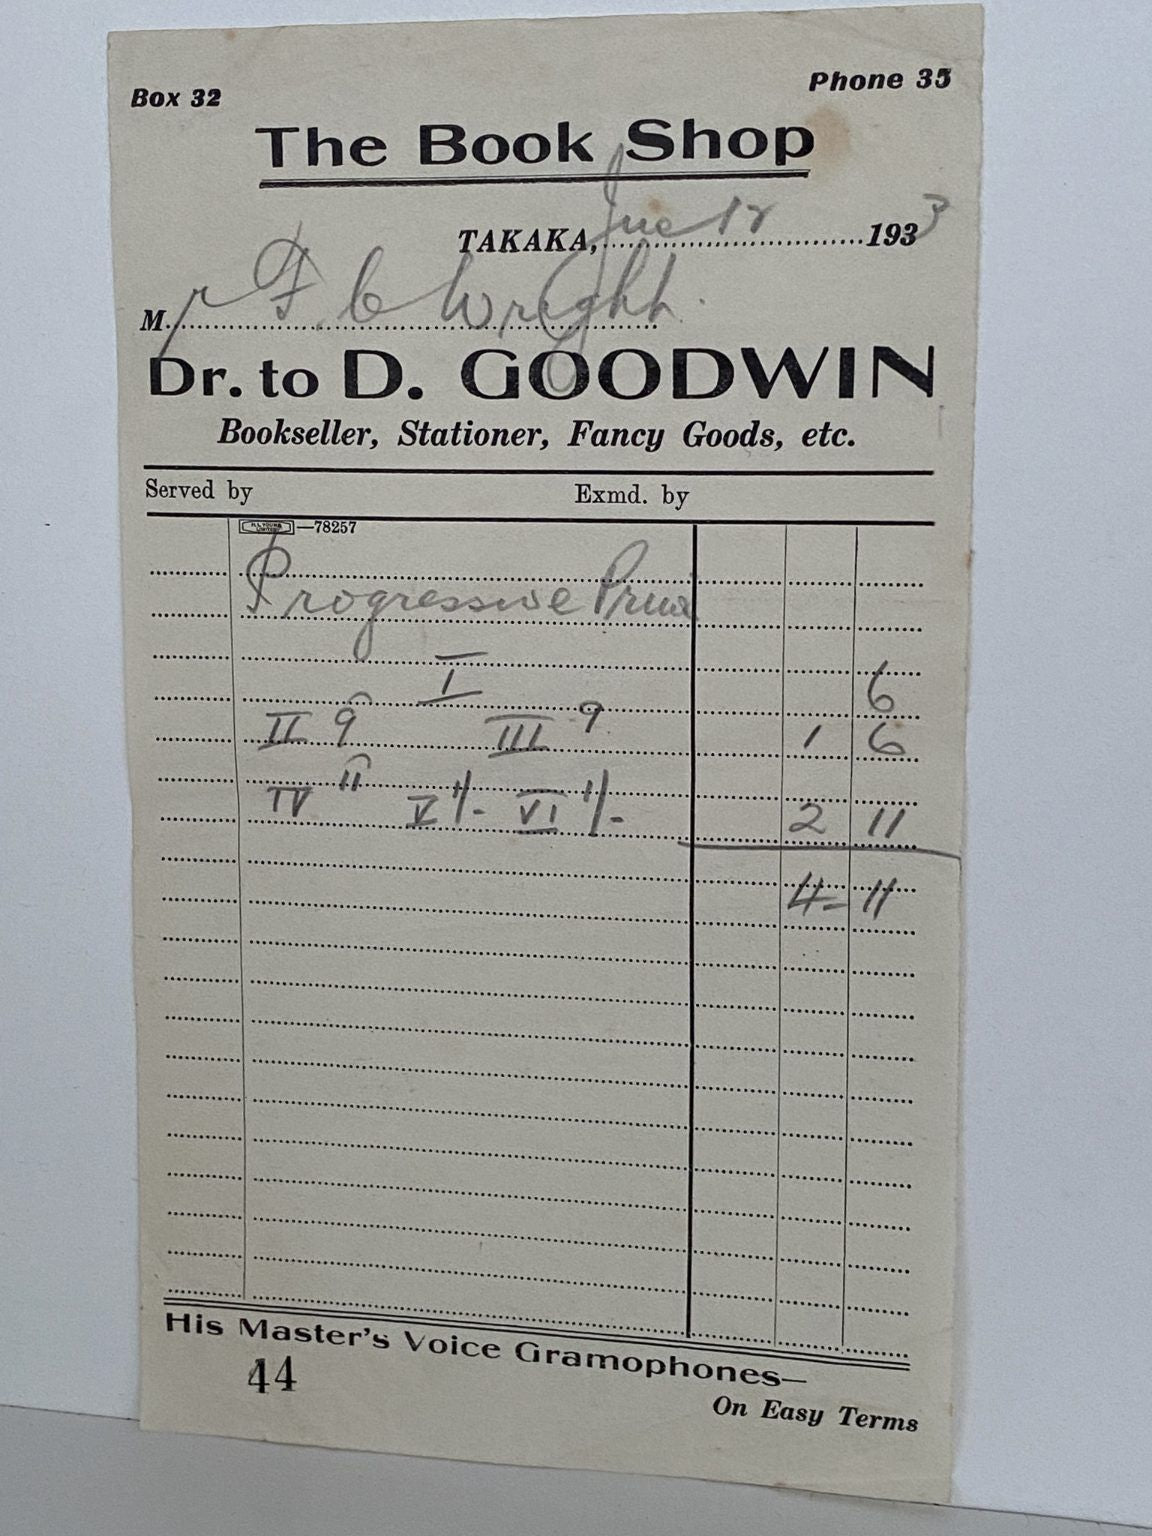 Box 32 Phone 35
The Book Shop
TAKAKA, June 12 1933
Mr F. C Wright.
Dr. to D. GOODWIN
Bookseller, Stationer, Fancy Goods, etc.
Served by Exmd. by
—78257
Progressive
I 6
II 9 III 9 1 6
IV 11 V 1/- VI 1/- 2 11
4 - 11
His Master's Voice Gramophones—
44
On Easy Terms